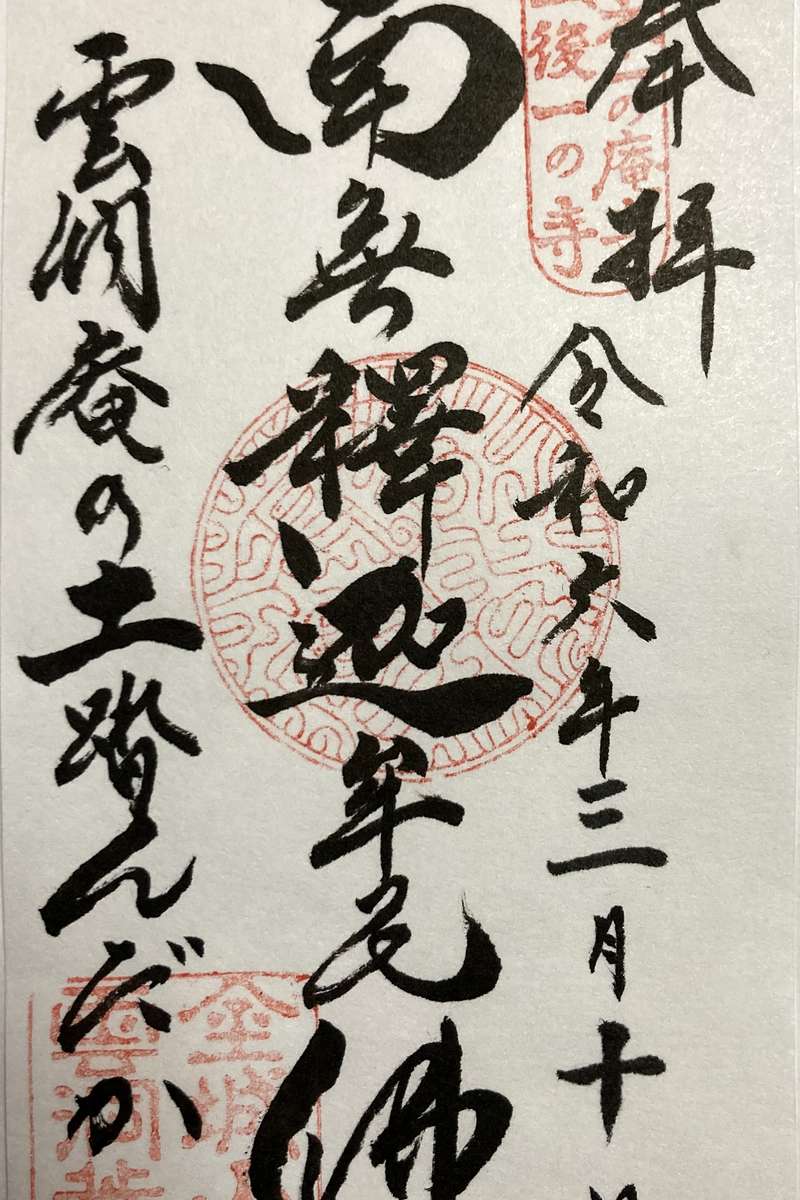 奉拝
令和六年三月十
後一の寺
南無釋迦牟尼佛
雲洞庵の土踏んだか
金城
雲洞